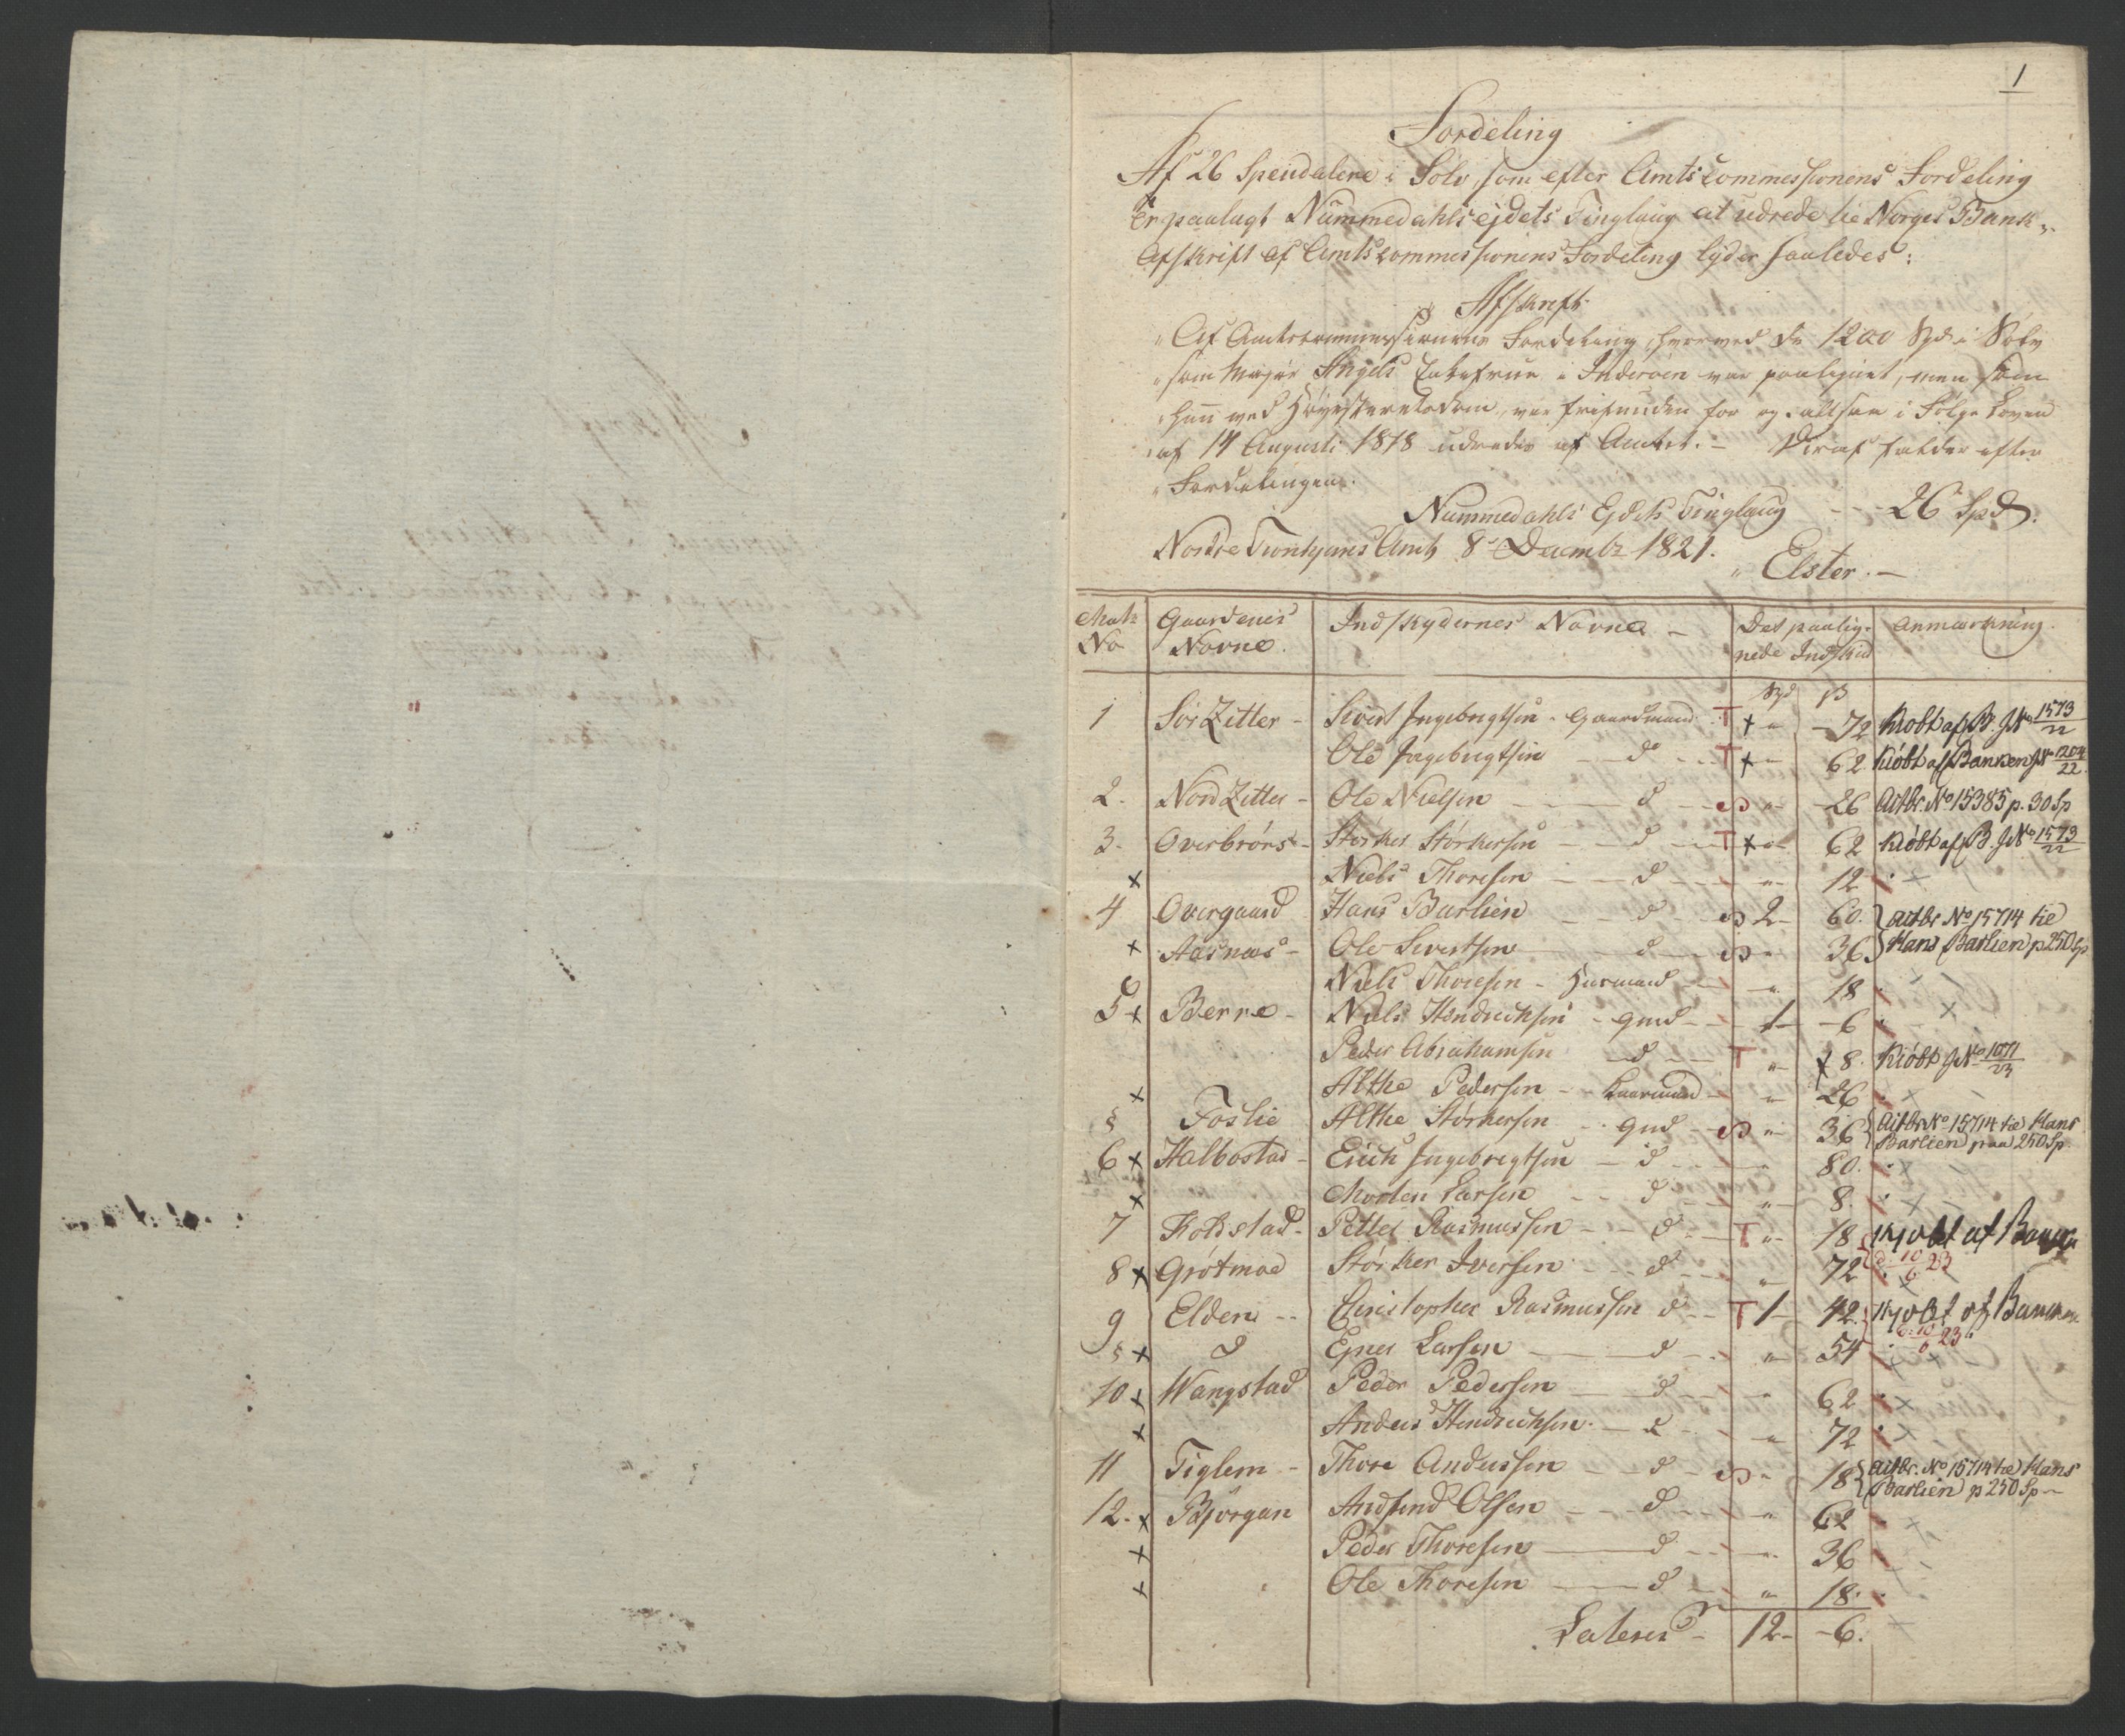 1
Fordeling
Af 26 Speciedalere i Sølv, som efter Amtscommissionens Fordeling
er paalagt Nummedahls ejdets Tinglaug at udrede tie Norges Bank,
Afskrift af Amtscommissionens Fordeling lyder saaledes:
Afskrift
"Af Amtscommissionens Fordeling, hvorved de 1200 Spd i Sølv
"som Major Angels Enkefrue i Inderøen var paalignet, men som
"hun ved Høyesteretsdom, var frifunden for og altsaa i Følge Loven
"af 14 Augusti 1818 udredes af Amtet. – Deraf falder efter
"Fordelingen.
Nummedahls Ejdets Tinglaug – – 26 Spd.
Nordre Tronthjems Amt 8de Decembr 1821.
" Elster. –
Matr No | Gaardenes Navne. | Indskydernes Navne – | Det paalignede Indskud | Anmærkning.
Spd ß
1 Sør Zitter – Sivert Ingebrigtsen – Gaardmand T + " – 72 Kiøbt af B. JNo 1573/22
Ole Ingebrigtsen – d – T + – 62. Kiøbt af Banken JNo 1204/22.
2. Nord Zitter – Ole Nielsen – d – " – 26 Actbr. No 15385 p. 30 Sp
3. Overbrørs – Størker Størkersen – d – T + " 62 Kiøbt af B. JNo 1573/22
x Niels Thoresen – d – " 12
4 Overgaard Hans Barlien – d – 2 – 60. } Actbr No 15714 tie
x Aasnæs – Ole Sivertsen – d – " 36 } Hans Barlien p 250 Sp
Niels Thoresen – Huusmand – " 18
5 x Berre – Niels Hendrichsen – gmd – 1 – 6
Peder Abrahamsen – d – T " 8. Kiøbt JNo 1071/23
x Althe Pedersen – " 26
§ Foslie Althe Størkersen – gmd – " 36 { Actbr No 15714 tie Hans
Barlien paa 250 Sp.
6 x Halbostad – Erich Ingebrigtsen – d – 80.
x Morten Larsen – d – " 8.
7 Holdstad – Petter Rasmussen – d – T " 18 Kjøbt af Banken
d. 10/6 23
8 x Grøtmoe Størker Iversen – d – " 72
9 Elden – Christopher Rasmussen d – T 1 – 42. Kjøbt af Banken
d. 10/6 23
§ x d Ejner Larsen – d – " 54
10 x Wangstad Peder Pedersen – d – " 62
x Anders Hendrichsen – d – " 72
11 Tiglem – Thore Andersen – d – " 18 { Actbr. No 15714 tie Hans
Barlien p 250 Sp –
12. x Bjørgan Andfind Olsen – d – " 62
x Peder Thoresen – d – " 36
x Ole Thoresen – d – " 18.
Lateris – 12 – 6.